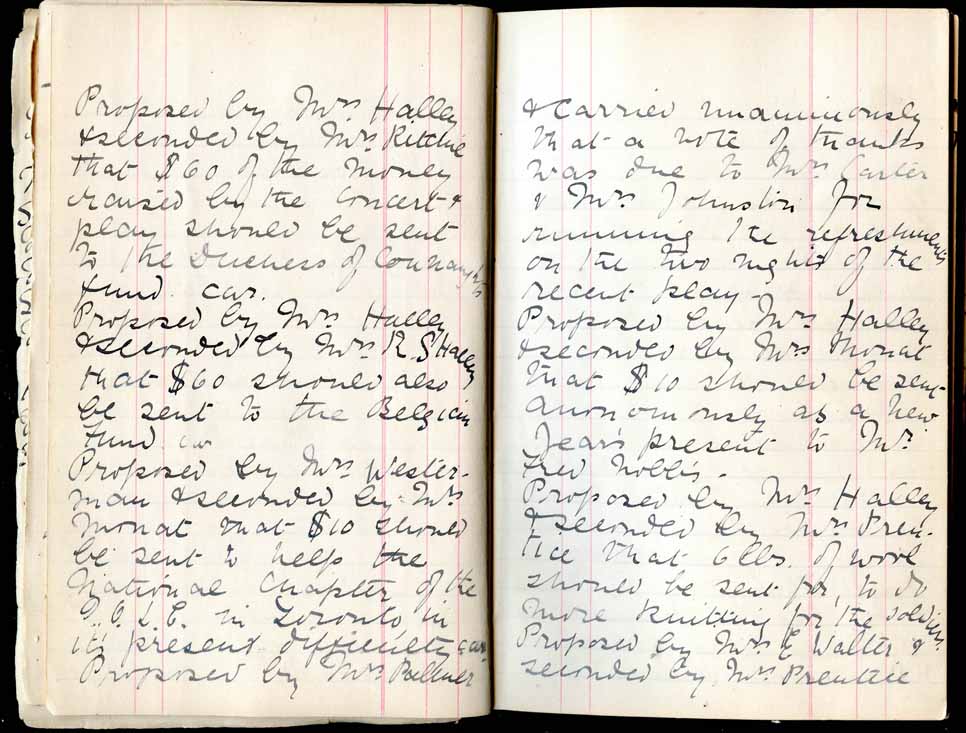 Proposed by Mrs Halley
& seconded by Mrs Ritchie
that $60 of the money
raised by the concert &
play should be sent
to the Duchess of Connaught's
fund. car.
Proposed by Mrs Halley
& seconded by Mrs R. S Halley
that $60 should also
be sent to the Belgian
fund car
Proposed by Mrs Wester-
man & seconded by Mrs
Monat that $10 should
be sent to help the
National Chapter of the
I.O.D.E. in Toronto in
it's present difficulty car.
Proposed by Mrs
& carried unanimously
that a vote of thanks
was due to Mrs Carter
& Mrs Johnston for
running the refreshments
on the two nights of the
recent play -
Proposed by Mrs Halley
& seconded by Mrs Monat
that $10 should be sent
anonomously as a New
Year's present to Mr
Fred Nobbs.
Proposed by Mrs Halley
& seconded by Mrs Pren-
tice that 6 lbs. of wool
should be sent for, to do
more knitting for the soldiers.
Proposed by Mrs E Walter &
seconded by Mrs Prentice